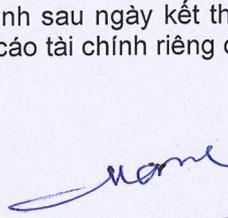 nh sau ngày kết th
cáo tài chính riêng